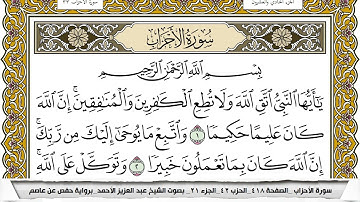 الجزء الحادي والعشرون
سورة الأحزاب ٣٣
سُورَةُ الأَحْزَابِ
بِسْمِ اللَّهِ الرَّحْمَٰنِ الرَّحِيمِ
يَٰٓأَيُّهَا ٱلنَّبِىُّ ٱتَّقِ ٱللَّهَ وَلَا تُطِعِ ٱلْكَٰفِرِينَ وَٱلْمُنَٰفِقِينَۗ إِنَّ ٱللَّهَ
كَانَ عَلِيمًا حَكِيمًا ١ وَٱتَّبِعْ مَا يُوحَىٰٓ إِلَيْكَ مِن رَّبِّكَۚ
إِنَّ ٱللَّهَ كَانَ بِمَا تَعْمَلُونَ خَبِيرًا ٢ وَتَوَكَّلْ عَلَى ٱللَّهِۚ
سورة الأحزاب _الصفحة ٤١٨_الحزب ٤٢_الجزء ٢١_ بصوت الشيخ عبد العزيز الأحمد_برواية حفص عن عاصم